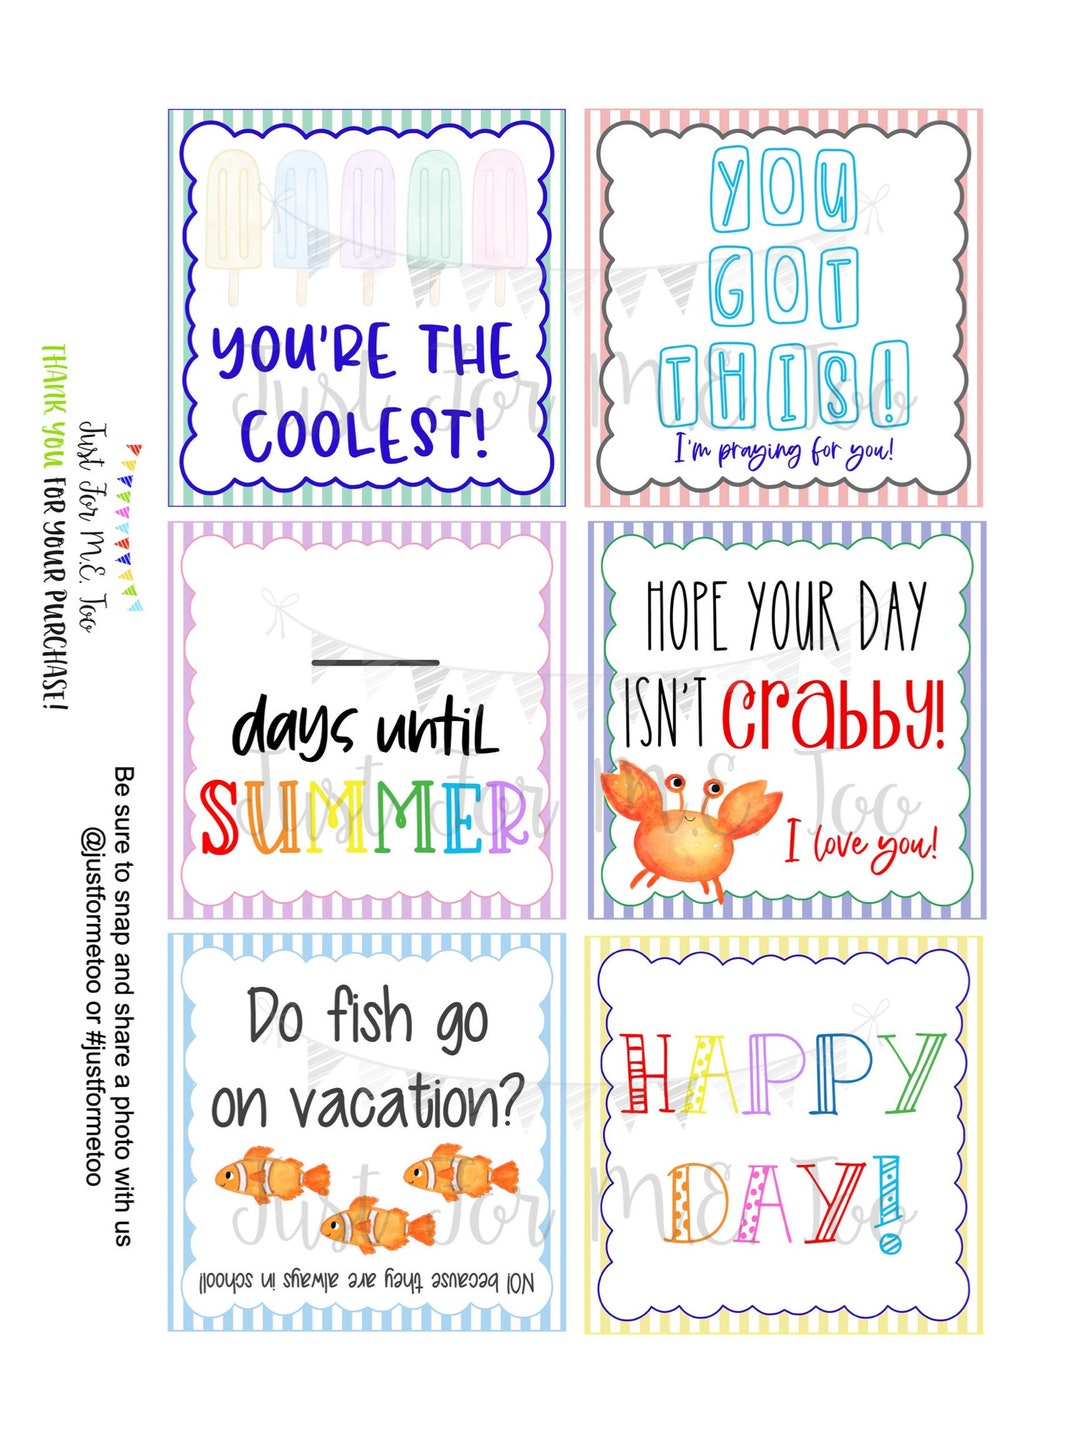 YOU'RE THE
COOLEST!
YOU
GOT
THIS!
I'm praying for you!
days until
SUMMER
HOPE YOUR DAY
ISN'T crabby!
I love you!
Do fish go
on vacation?
NO! because they are always in school!
HAPPY
DAY!
Just For M.E. Too
Just For M.E. Too
Just For M.E. Too
Just For M.E. Too
THANK YOU FOR YOUR PURCHASE!
Be sure to snap and share a photo with us
@justformetoo or #justformetoo